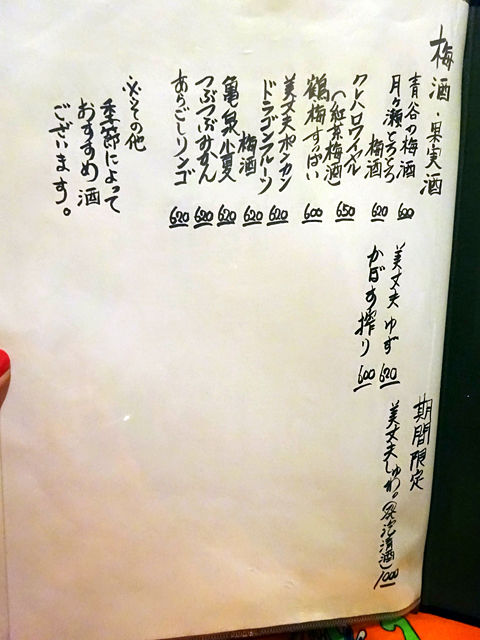 梅酒・果実酒
青谷の梅酒 600
月ヶ瀬とろとろ
梅酒 620
クレハロワイヤル
(紅茶梅酒) 650
鶴梅すっぱい 600
美丈夫ポンカン 620
ドラゴンフルーツ
梅酒 620
亀泉小夏 620
つぶつぶみかん 620
あらごしリンゴ 620
※その他
季節によって
おすすめ酒
ございます。
美丈夫 ゆず 620
かぼす搾り 600
期間限定
美丈夫しゅわ。(発泡清酒) 1000